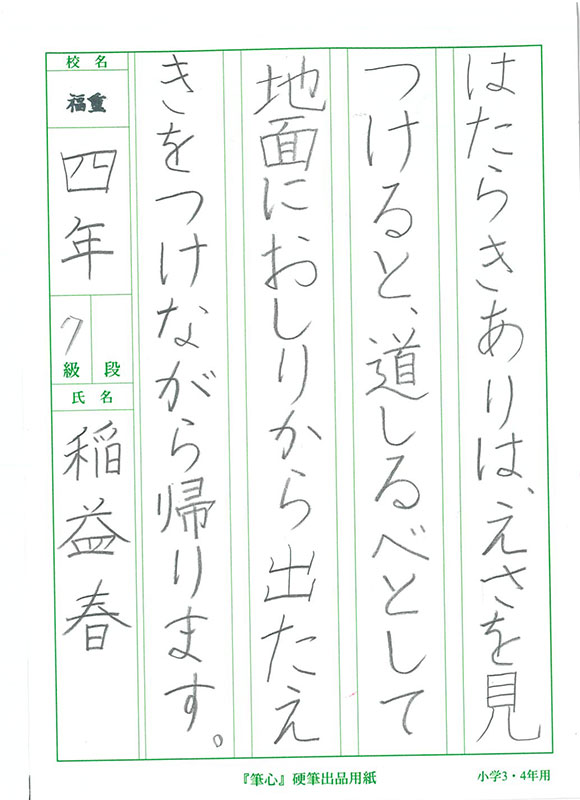 はたらきありは、えさを見
つけると、道しるべとして
地面におしりから出たえ
きをつけながら帰ります。
校名
福重
四年
7
級 段
氏名
稲益春
『筆心』硬筆出品用紙
小学3・4年用